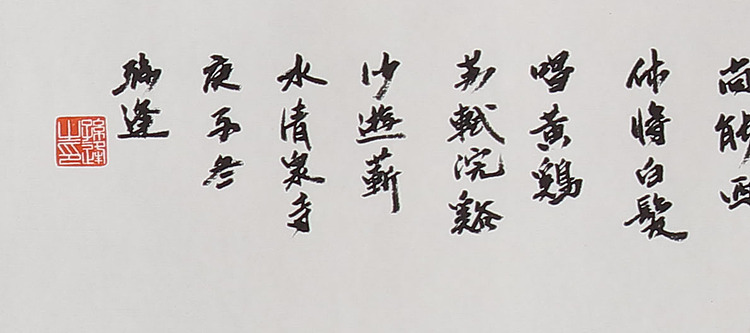 尚能西
休將白髮
唱黄鷄
苏軾浣谿
沙遊蘄
水清泉寺
庚子冬
孫逢
孫逢之印